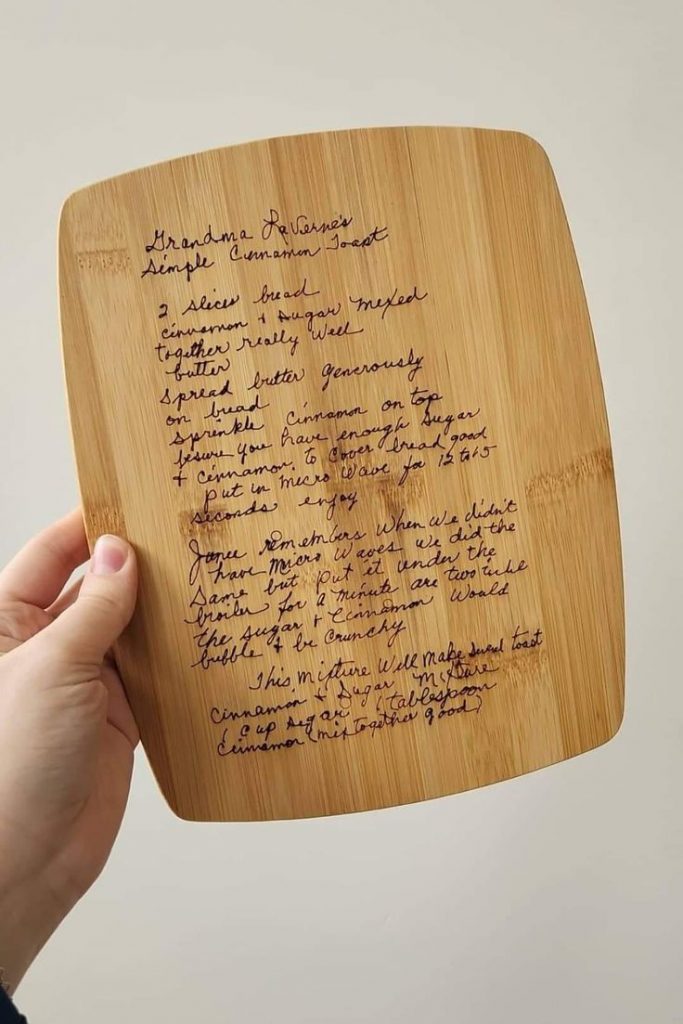 Grandma LaVerne's
Simple Cinnamon Toast
2 slices bread
cinnamon + sugar mixed
together really well
butter
spread butter generously
on bread
sprinkle cinnamon on top
besure you have enough sugar
+ cinnamon to cover bread good
put in micro wave for 12 to 15
seconds enjoy
remembers when we didn't
have micro waves we did the
same but put it under the
broiler for a minute are two
the sugar + cinnamon would
bubble + be crunchy
This mixture will make toast
cinnamon + sugar mixture
1 cup sugar 1 tablespoon
cinnamon (mix together good)